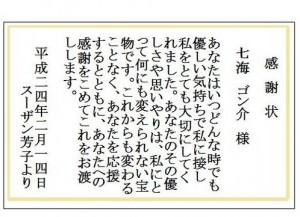 感謝状
七海 ゴン介 様
あなたはいつどんな時でも
優しい気持ちで私に接し
私をとても大切にしてく
れました。あなたのその優
しさや思いやりは、私にと
って何にも変えられない宝
物です。これからも変わる
ことなく、あなたを応援
するとともに、あなたへの
感謝をこめてこれをお渡
しします。
平成二四年二月一四日
スーザン芳子より